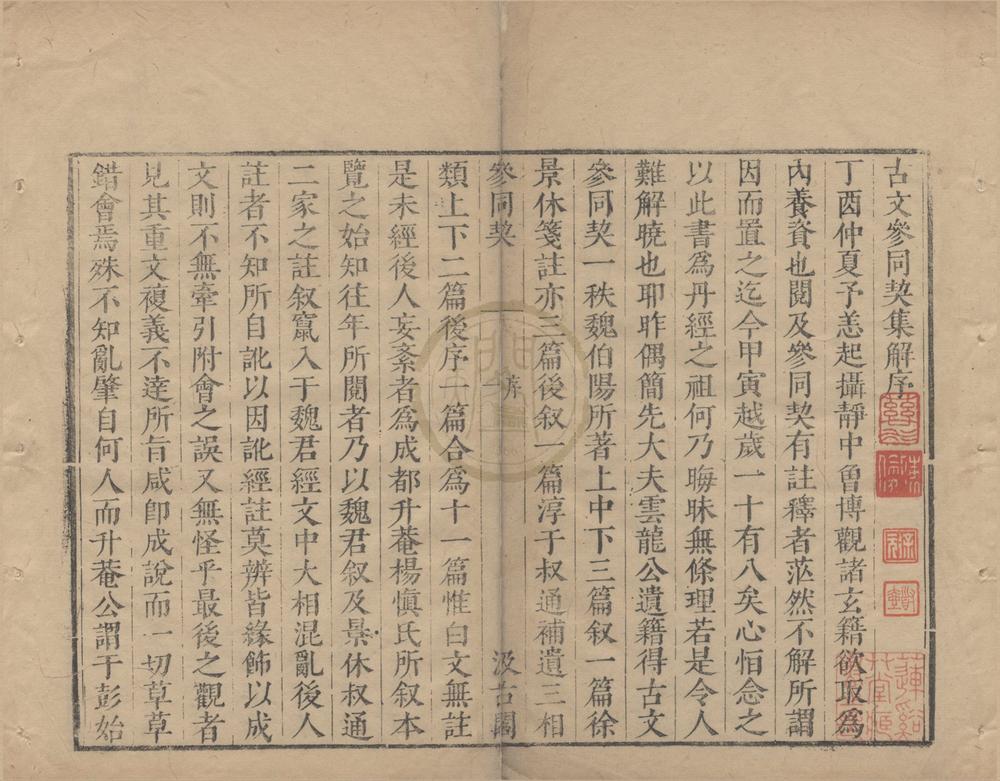 古文參同契集解序
丁酉仲夏予恙起攝靜中曾博觀諸玄籍欲取爲
內養資也閱及參同契有註釋者茫然不解所謂
因而置之迄今甲寅越歲一十有八矣心恒念之
以此書爲丹經之祖何乃晦昧無條理若是令人
難解曉也耶昨偶簡先大夫雲龍公遺籍得古文
參同契一秩魏伯陽所著上中下三篇叙一篇徐
景休箋註亦三篇後叙一篇淳于叔通補遺三相
參同契 序 一 汲古閣
類上下二篇後序一篇合爲十一篇惟白文無註
是未經後人妄紊者爲成都升菴楊愼氏所叙本
覽之始知往年所閱者乃以魏君叙及景休叔通
二家之註叙竄入于魏君經文中大相混亂後人
註者不知所自訛以因訛經註莫辨皆緣飾以成
文則不無牽引附會之誤又無怪乎最後之觀者
見其重文複義不達所旨咸卽成說而一切草草
錯會焉殊不知亂肇自何人而升菴公謂于彭始